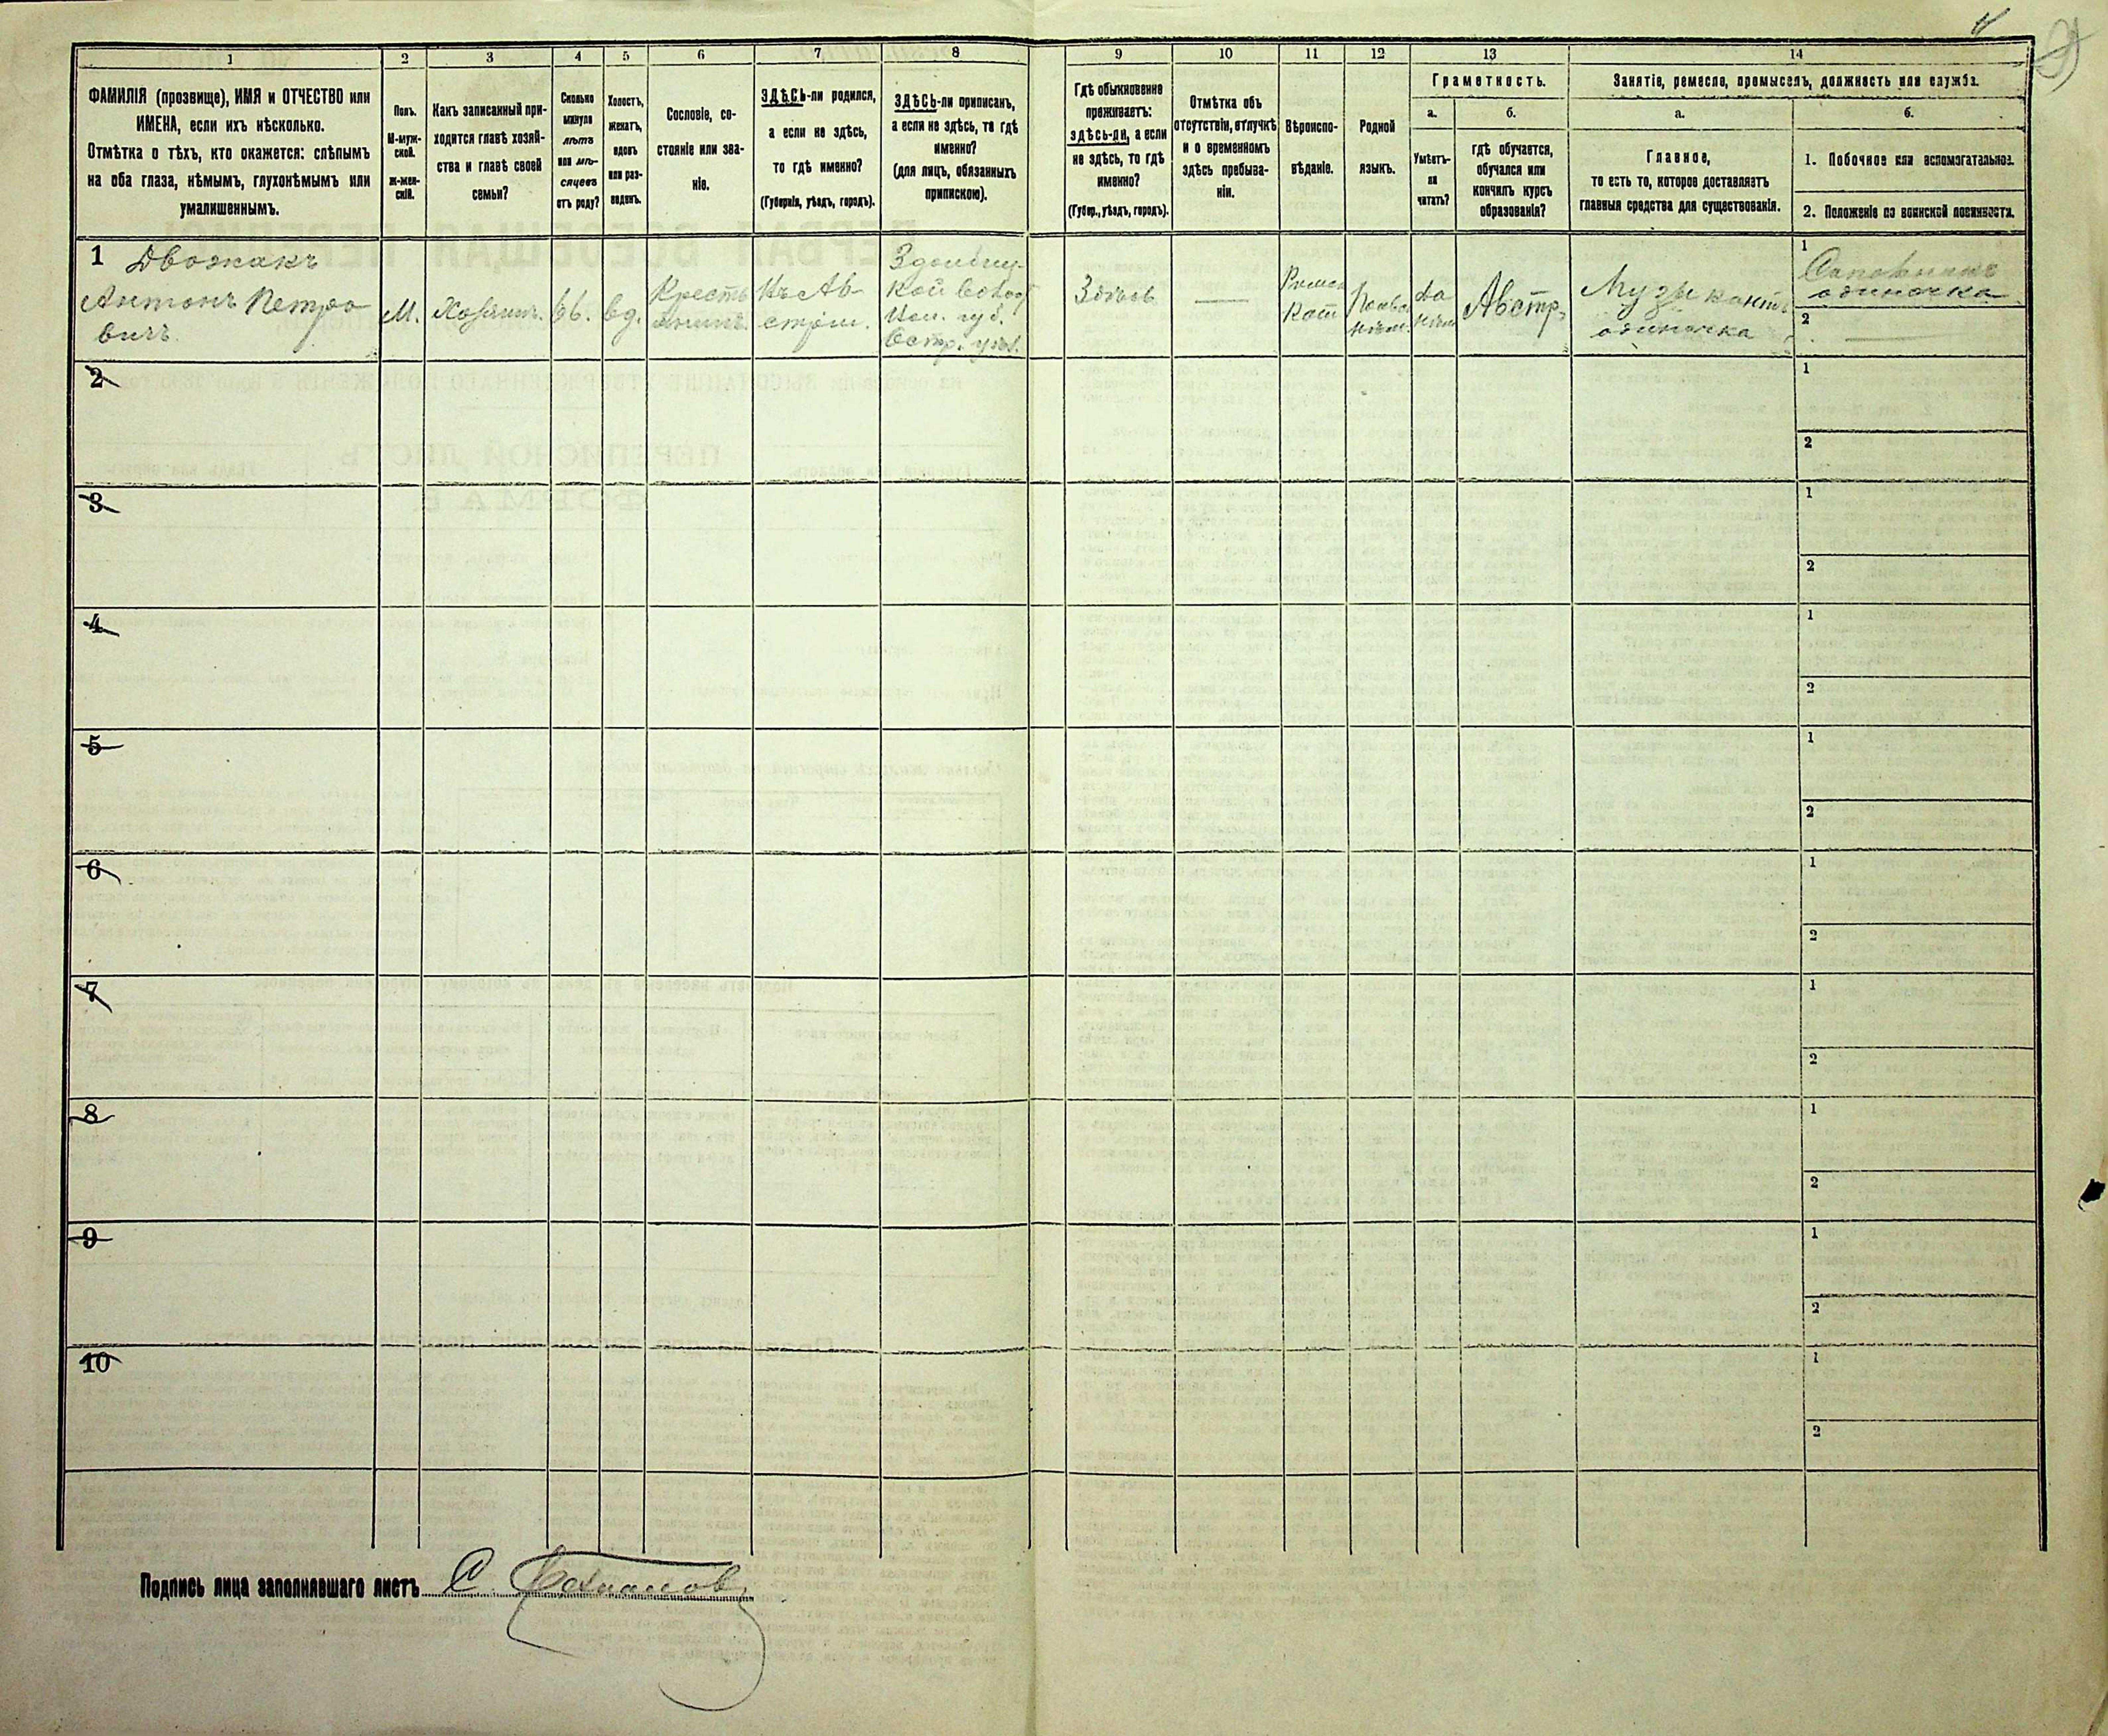 1
2
3
4
5
6
7
8
9
10
11
12
13
14
ФАМИЛІЯ (прозвище), ИМЯ и ОТЧЕСТВО или
ИМЕНА, если ихъ нѣсколько.
Отмѣтка о тѣхъ, кто окажется: слѣпымъ
на оба глаза, нѣмымъ, глухонѣмымъ или
умалишеннымъ.
Полъ.
М-муж-
ской.
ж-жен-
скій.
Какъ записанный при-
ходится главѣ хозяй-
ства и главѣ своей
семьи?
Сколько
минуло
лѣтъ
или мѣ-
сяцевъ
отъ роду?
Холостъ,
женатъ,
вдовъ
или раз-
веденъ.
Сословіе, со-
стояніе или зва-
ніе.
ЗДѢСЬ-ли родился,
а если не здѣсь,
то гдѣ именно?
(Губернія, уѣздъ, городъ).
ЗДѢСЬ-ли приписанъ,
а если не здѣсь, то гдѣ
именно?
(для лицъ, обязанныхъ
припискою).
Гдѣ обыкновенно
проживаетъ:
здѣсь-ли, а если
не здѣсь, то гдѣ
именно?
(Губер., уѣздъ, городъ).
Отмѣтка объ
отсутствіи, отлучкѣ
и о временномъ
здѣсь пребыва-
ніи.
Вѣроиспо-
вѣданіе.
Родной
языкъ.
Грамотность.
а.
Умѣетъ-
ли
читать?
б.
гдѣ обучается,
обучался или
кончилъ курсъ
образованія?
Занятіе, ремесло, промыселъ, должность или служба.
а.
Главное,
то есть то, которое доставляетъ
главныя средства для существованія.
б.
1. Побочное или вспомогательное.
2. Положеніе по воинской повинности.
1 Двожакъ
Антонъ Петро
вичъ
М.
Хозяинъ.
66.
вд.
Кресть
янинъ.
Въ Ав-
стріи.
Здолбиц-
кой волос
Вол. губ.
Остр. уѣз.
Здѣсь
—
Римск
Кат
нѣм.
да
нѣм
Австр.
Музыкантъ
одиночка
1
Сапожникъ
одиночка
2
—
2
1
2
3
1
2
4
1
2
5
1
2
6
1
2
7
1
2
8
1
2
9
1
2
10
1
2
Подпись лица заполнявшаго листъ С.